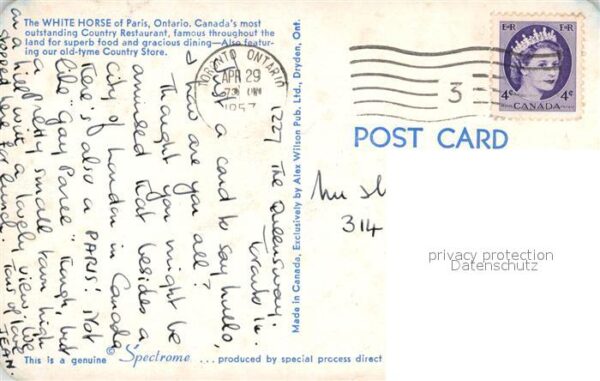 The WHITE HORSE of Paris, Ontario. Canada's most
outstanding Country Restaurant, famous throughout the
land for superb food and gracious dining—Also featur-
ing our old-tyme Country Store.
1227 The Queensway.
Toronto 14.
Just a card to say hullo,
& how are you all?
Thought you might be
amused that besides a
city of London in Canada
there's also a PARIS! Not
like "gay Paree" though, but
a pretty small town high
on a hill with a lovely view. We
stopped here for lunch. Tons of love
JEAN.
This is a genuine Spectrome ... produced by special process direct
Made in Canada, Exclusively by Alex Wilson Pub. Ltd., Dryden, Ont.
TORONTO ONTARIO
APR 29
1957
3
E R E R
4c 4c
CANADA
POST CARD
314
privacy protection
Datenschutz